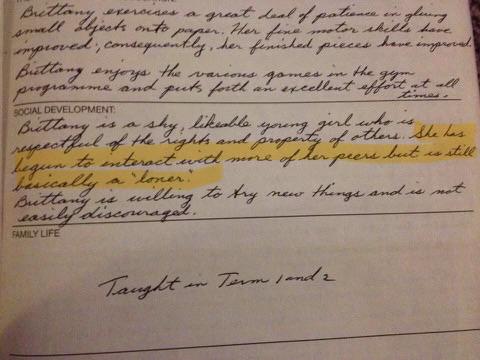 Brittany exercises a great deal of patience in gluing
small objects onto paper. Her fine motor skills have
improved; consequently, her finished pieces have improved.
Brittany enjoys the various games in the gym
programme and puts forth an excellent effort at all
times.
SOCIAL DEVELOPMENT:
Brittany is a shy, likeable young girl who is
respectful of the rights and property of others. She has
begun to interact with more of her peers but is still
basically a "loner."
Brittany is willing to try new things and is not
easily discouraged.
FAMILY LIFE
Taught in Term 1 and 2